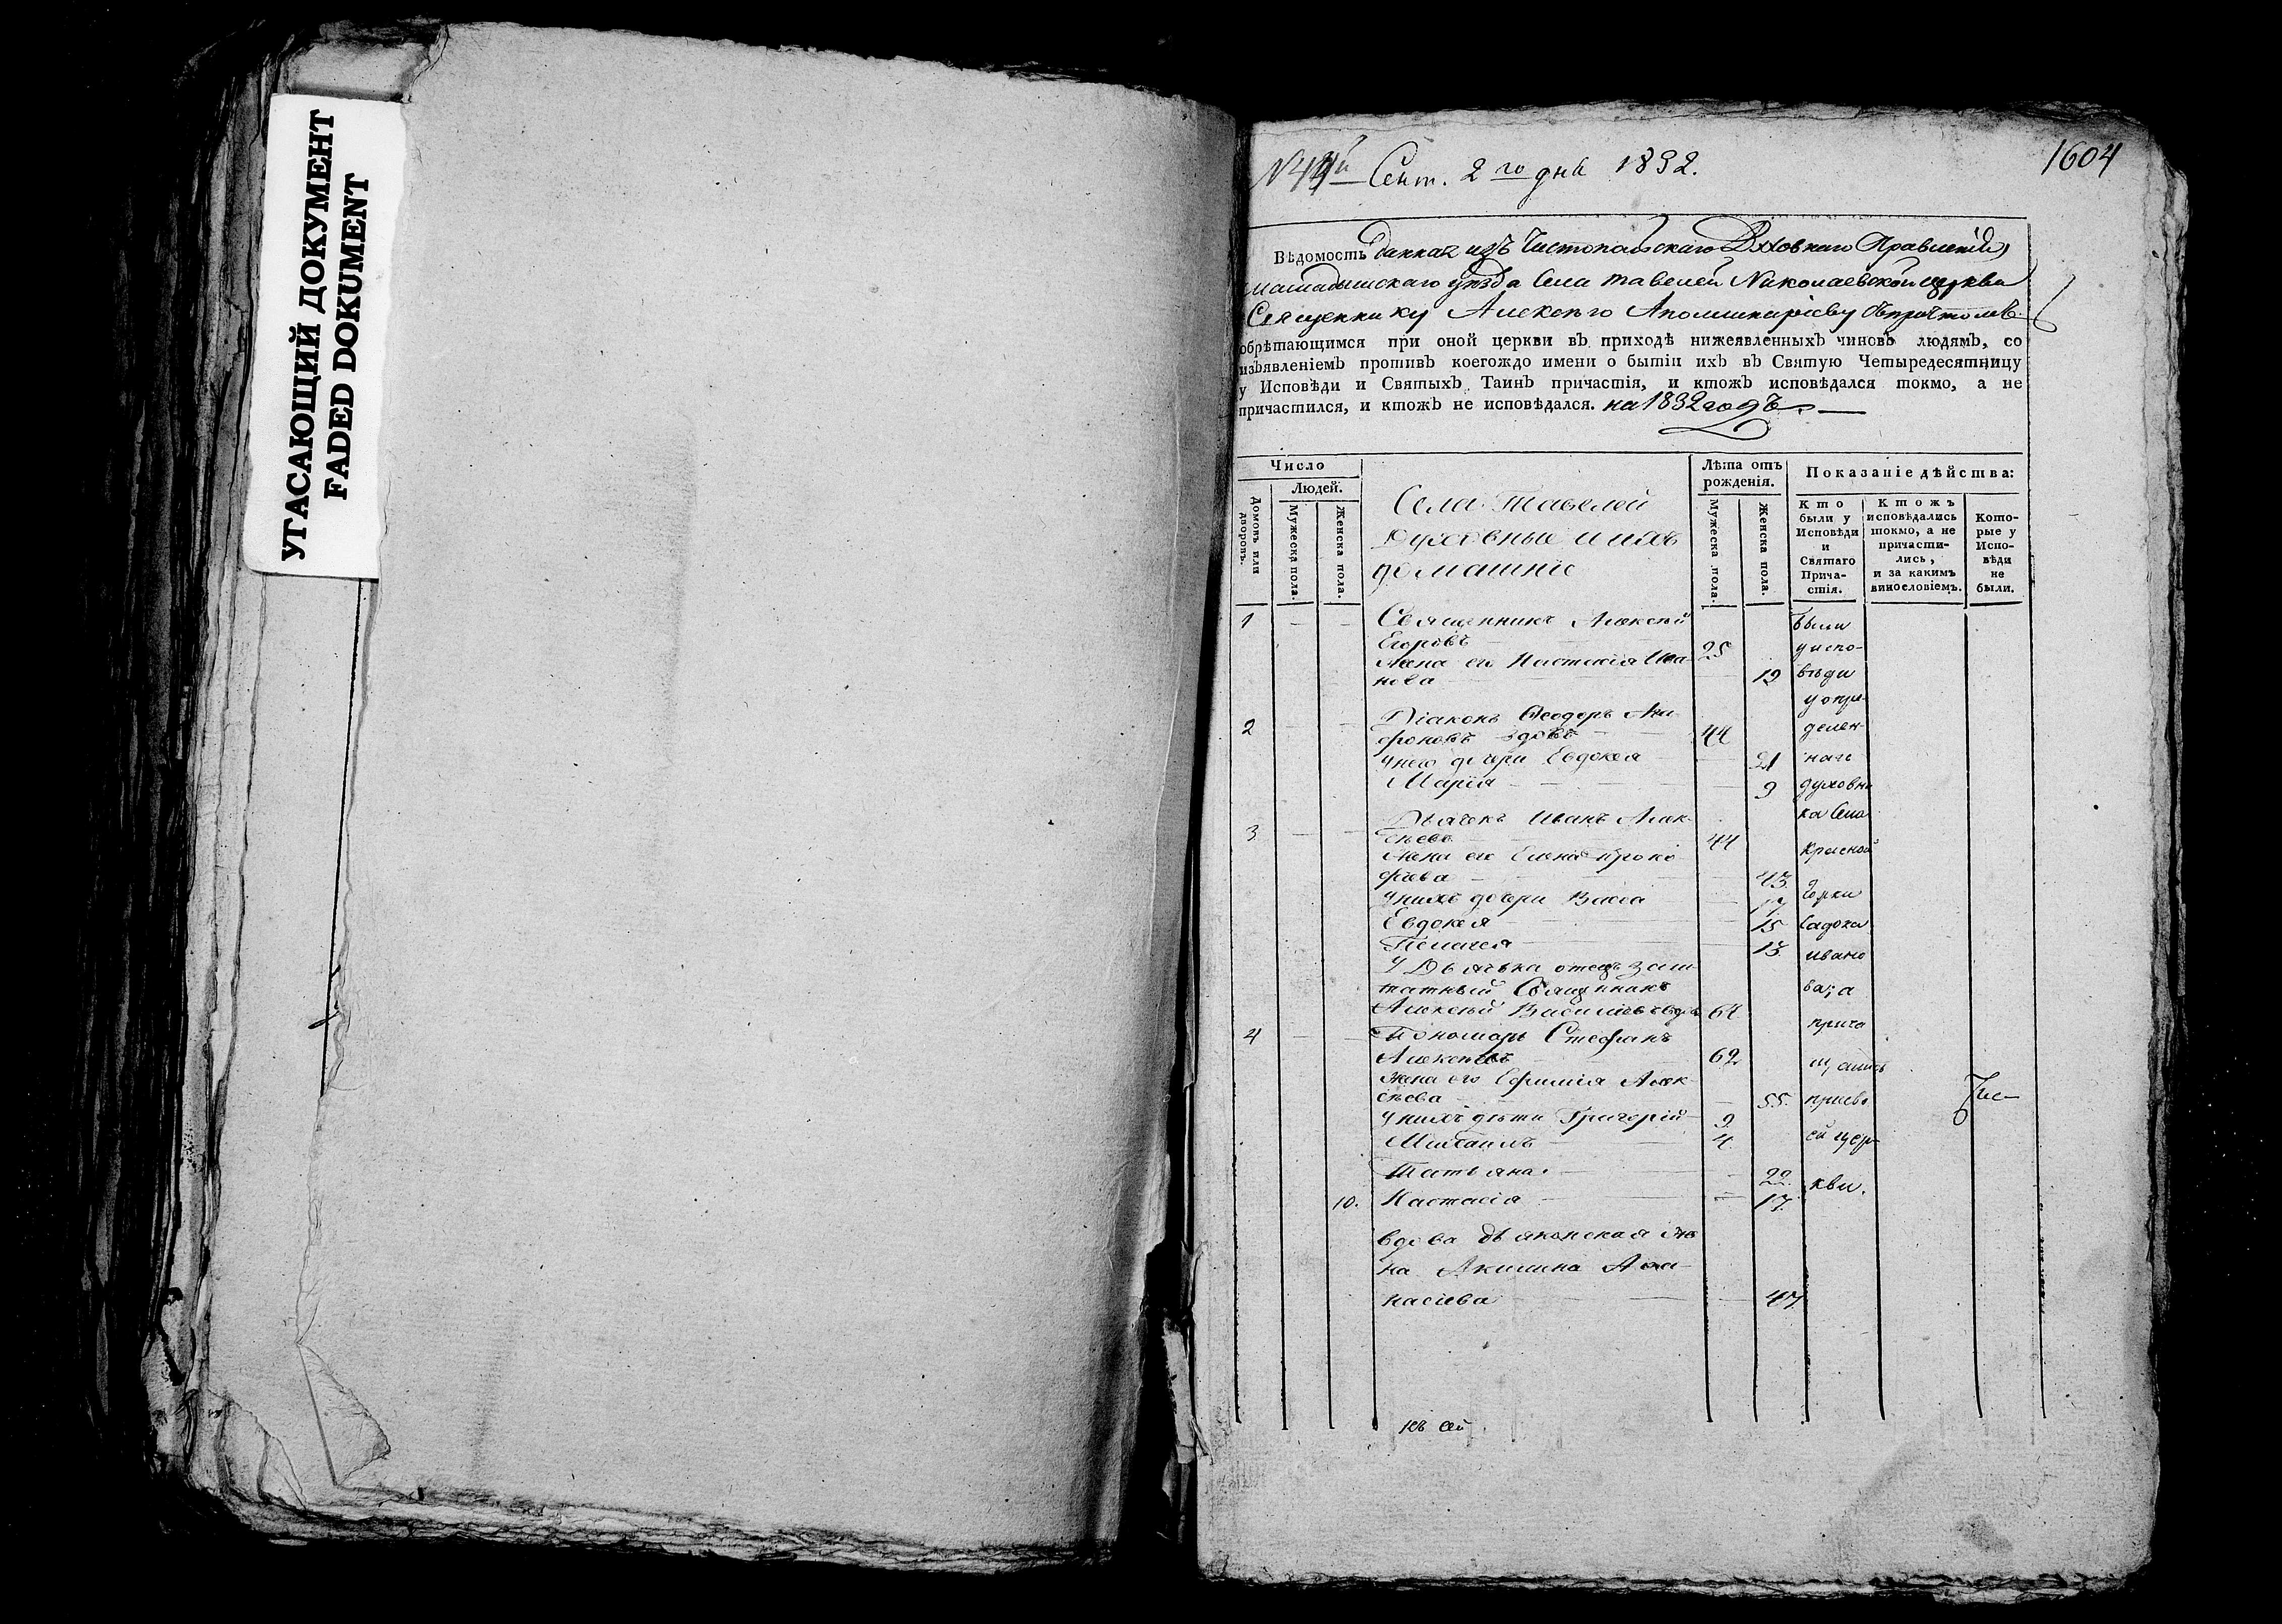 УГАСАЮЩИЙ ДОКУМЕНТ
FADED DOKUMENT
1604
Сент. 2 го дня 1832.
Вѣдомость данная изъ Чистопольскаго Духовнаго Правленія
мамадышскаго уѣзда Села тавелей Николаевской церкви
Священнику Алексѣю Аполлинаріеву съ причтомъ
обрѣтающимся при оной церкви въ приходѣ нижеявленныхъ чиновъ людямъ, со
изъявленіемъ противъ коегождо имени о бытіи ихъ въ Святую Четыредесятницу
у Исповѣди и Святыхъ Таинъ причастія, и ктожъ исповѣдался токмо, а не
причастился, и ктожъ не исповѣдался. на 1832 годъ.
Число
Людей.
Домовъ или дворовъ.
Мужеска пола.
Женска пола.
Села Тавелей
Духовные и ихъ
домашніе
Лѣта отъ рожденія.
Мужеска пола.
Женска пола.
Показаніе дѣйства:
Кто были у Исповѣди и Святаго Причастія.
Ктожъ исповѣдались токмо, а не причастились, и за какимъ винословіемъ.
Которые у Исповѣди не были.
1 Священникъ Алексѣй были
Егоровъ 25 у испо-
Жена его Настасія Ива-
нова 19 вѣди
у опре-
2 Діаконъ Феодоръ
вдовъ 44 делен-
у него дочери Евдокея 21 наго
Марія 9 духовни
ка Села
3 Дьячекъ Иванъ Алек-
сѣевъ 44 Красной
Жена его Елена Проко-
фьева 43
у нихъ дочери Васса 17
Евдокея 15 Садока
Пелагея 13 ивано
У Дьячка отецъ заш-
татный Священникъ ва; а
Алексѣй Васильевъ вдовъ
4 Пономарь Стефанъ прича
Алексѣевъ 62 щались
жена его Ефимія Алек-
сѣева 55 при сво
у нихъ дѣти Григорій 9
Михаилъ 4 ей цер-
Татьяна 22
10. Настасія 17 кви.
вдова дьяконская же
на Акилина Афа-
насіева 47